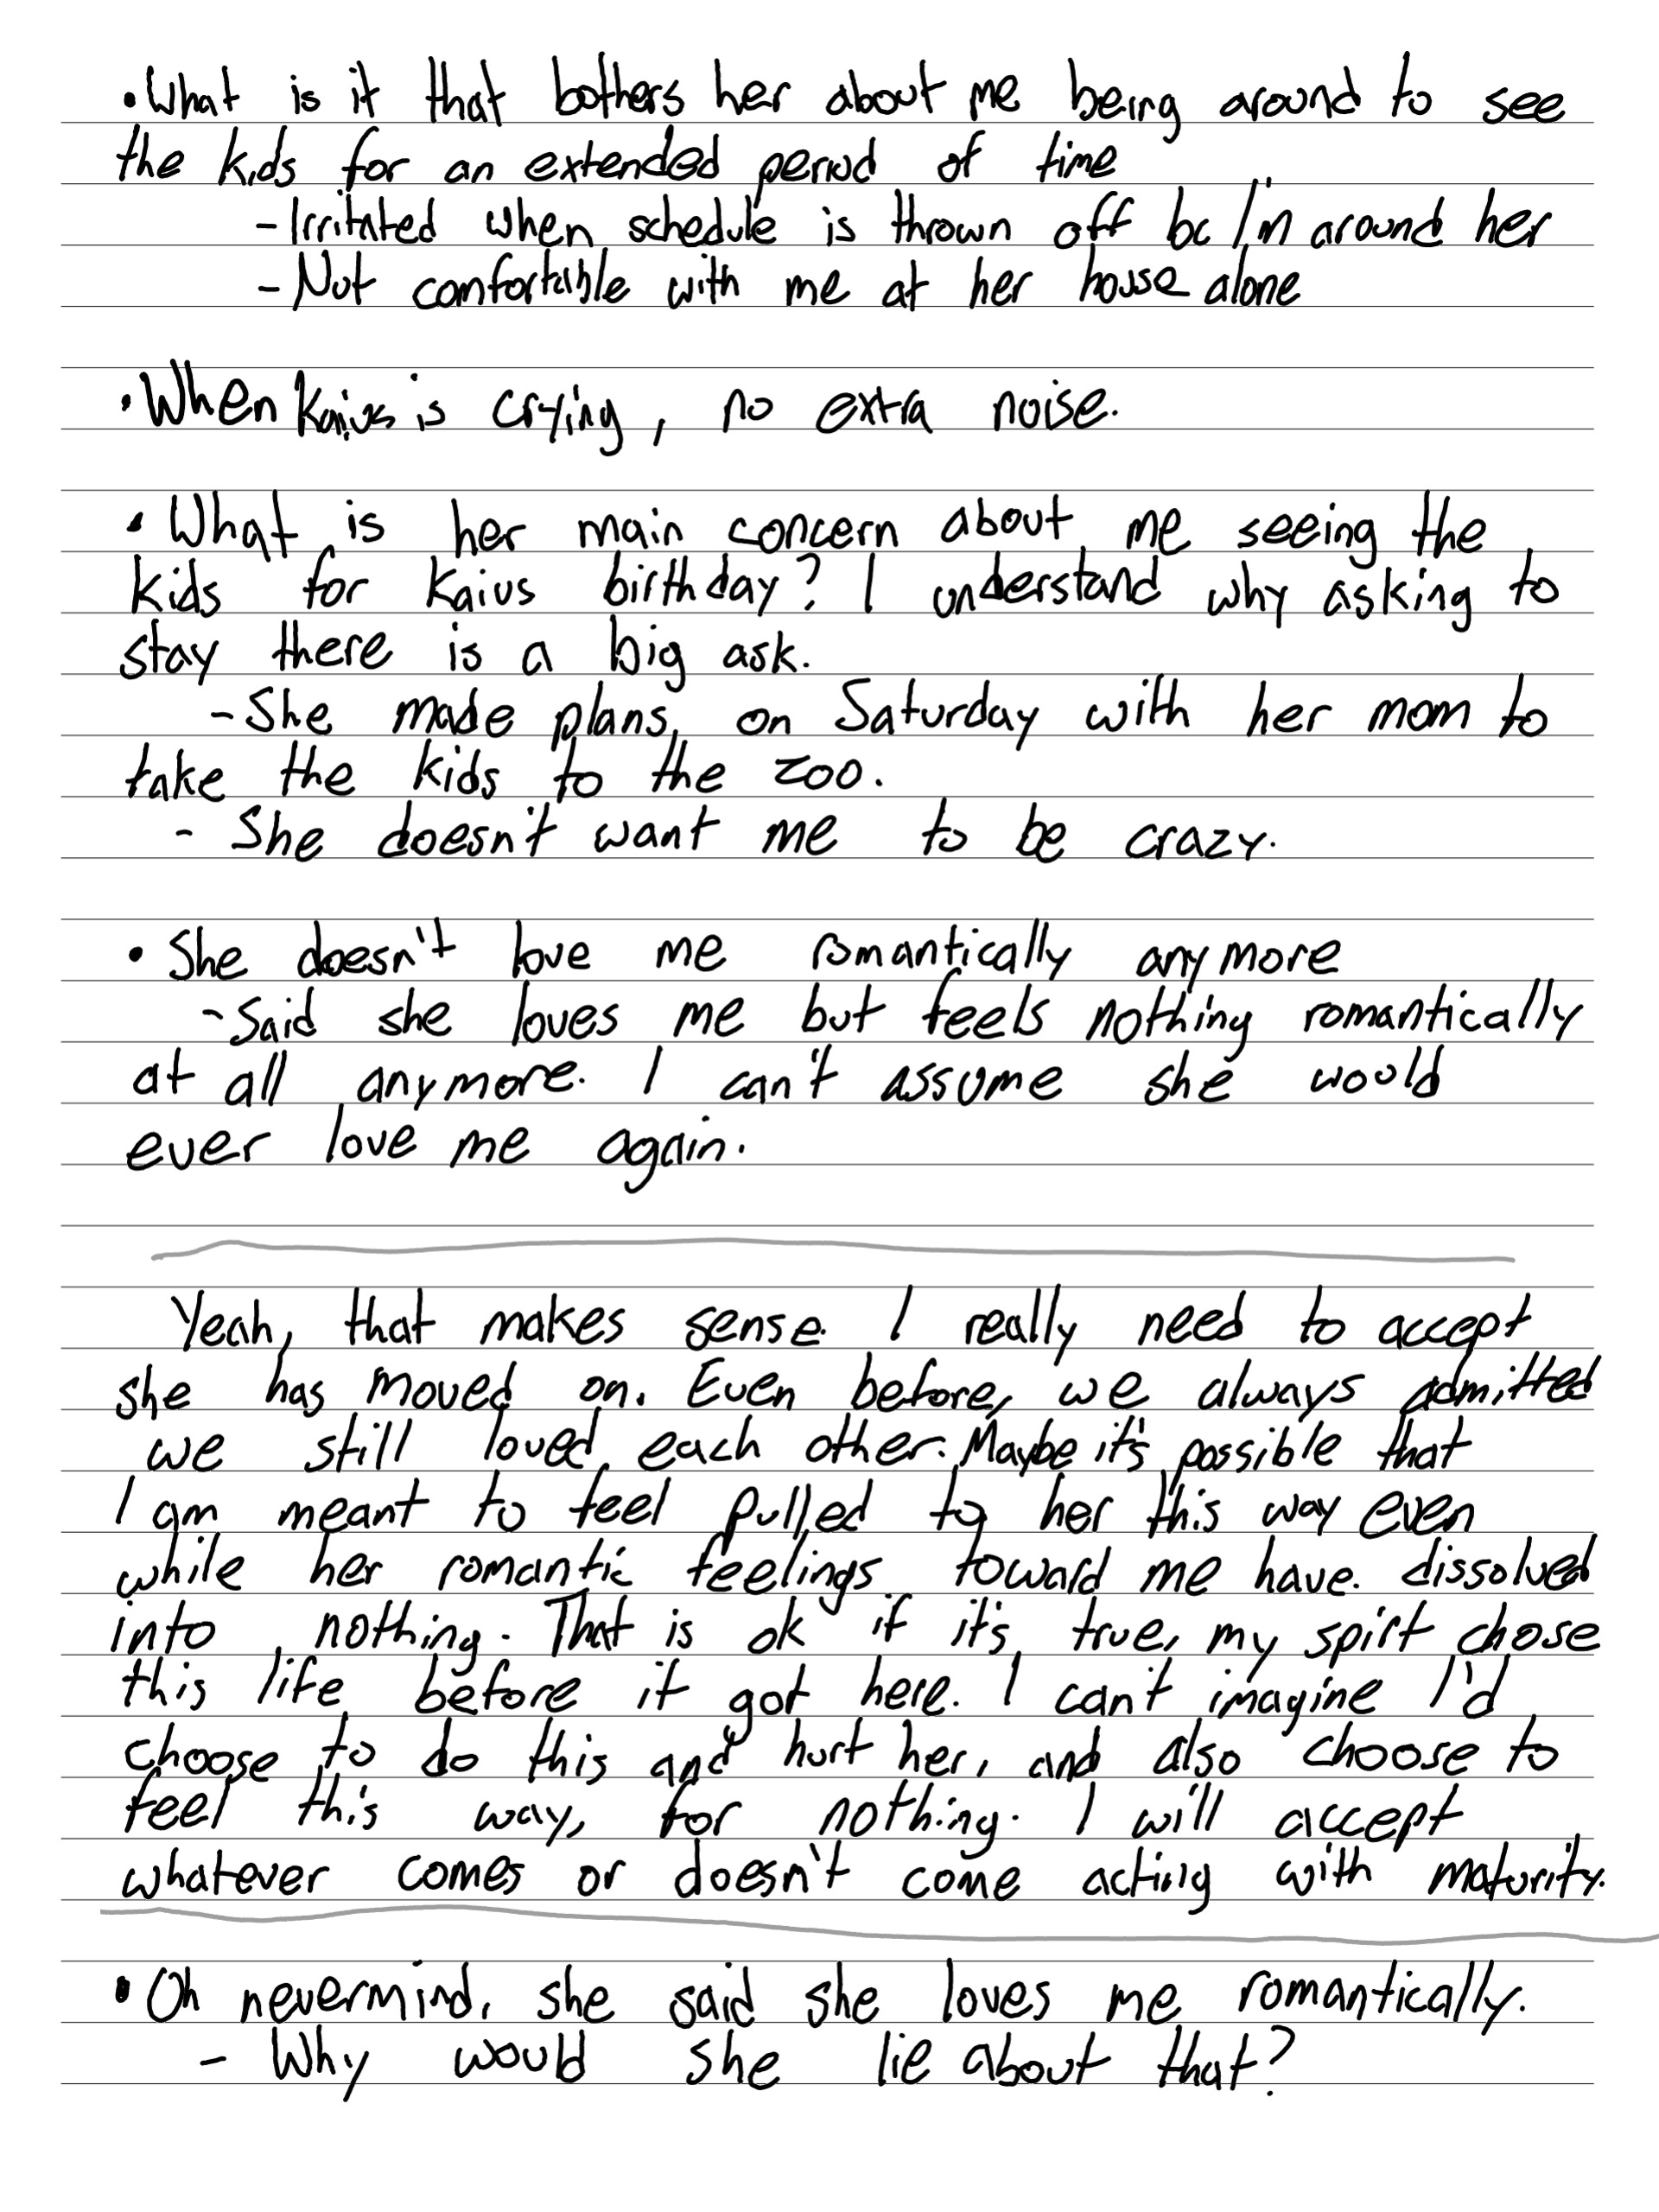 •What is it that bothers her about me being around to see
the kids for an extended period of time
-Irritated when schedule is thrown off bc I'm around her
-Not comfortable with me at her house alone
•When Kaius is crying, no extra noise.
•What is her main concern about me seeing the
kids for Kaius birthday? I understand why asking to
stay there is a big ask.
-She made plans on Saturday with her mom to
take the kids to the zoo.
- She doesn't want me to be crazy.
• She doesn't love me romantically anymore
-Said she loves me but feels nothing romantically
at all anymore. I can't assume she would
ever love me again.
Yeah, that makes sense. I really need to accept
she has moved on. Even before, we always admitted
we still loved each other. Maybe it's possible that
I am meant to feel pulled to her this way even
while her romantic feelings toward me have dissolved
into nothing. That is ok if it's true, my spirt chose
this life before it got here. I can't imagine I'd
choose to do this and hurt her, and also choose to
feel this way, for nothing. I will accept
whatever comes or doesn't come acting with maturity.
•Oh nevermind, she said she loves me romantically.
- Why would she lie about that?